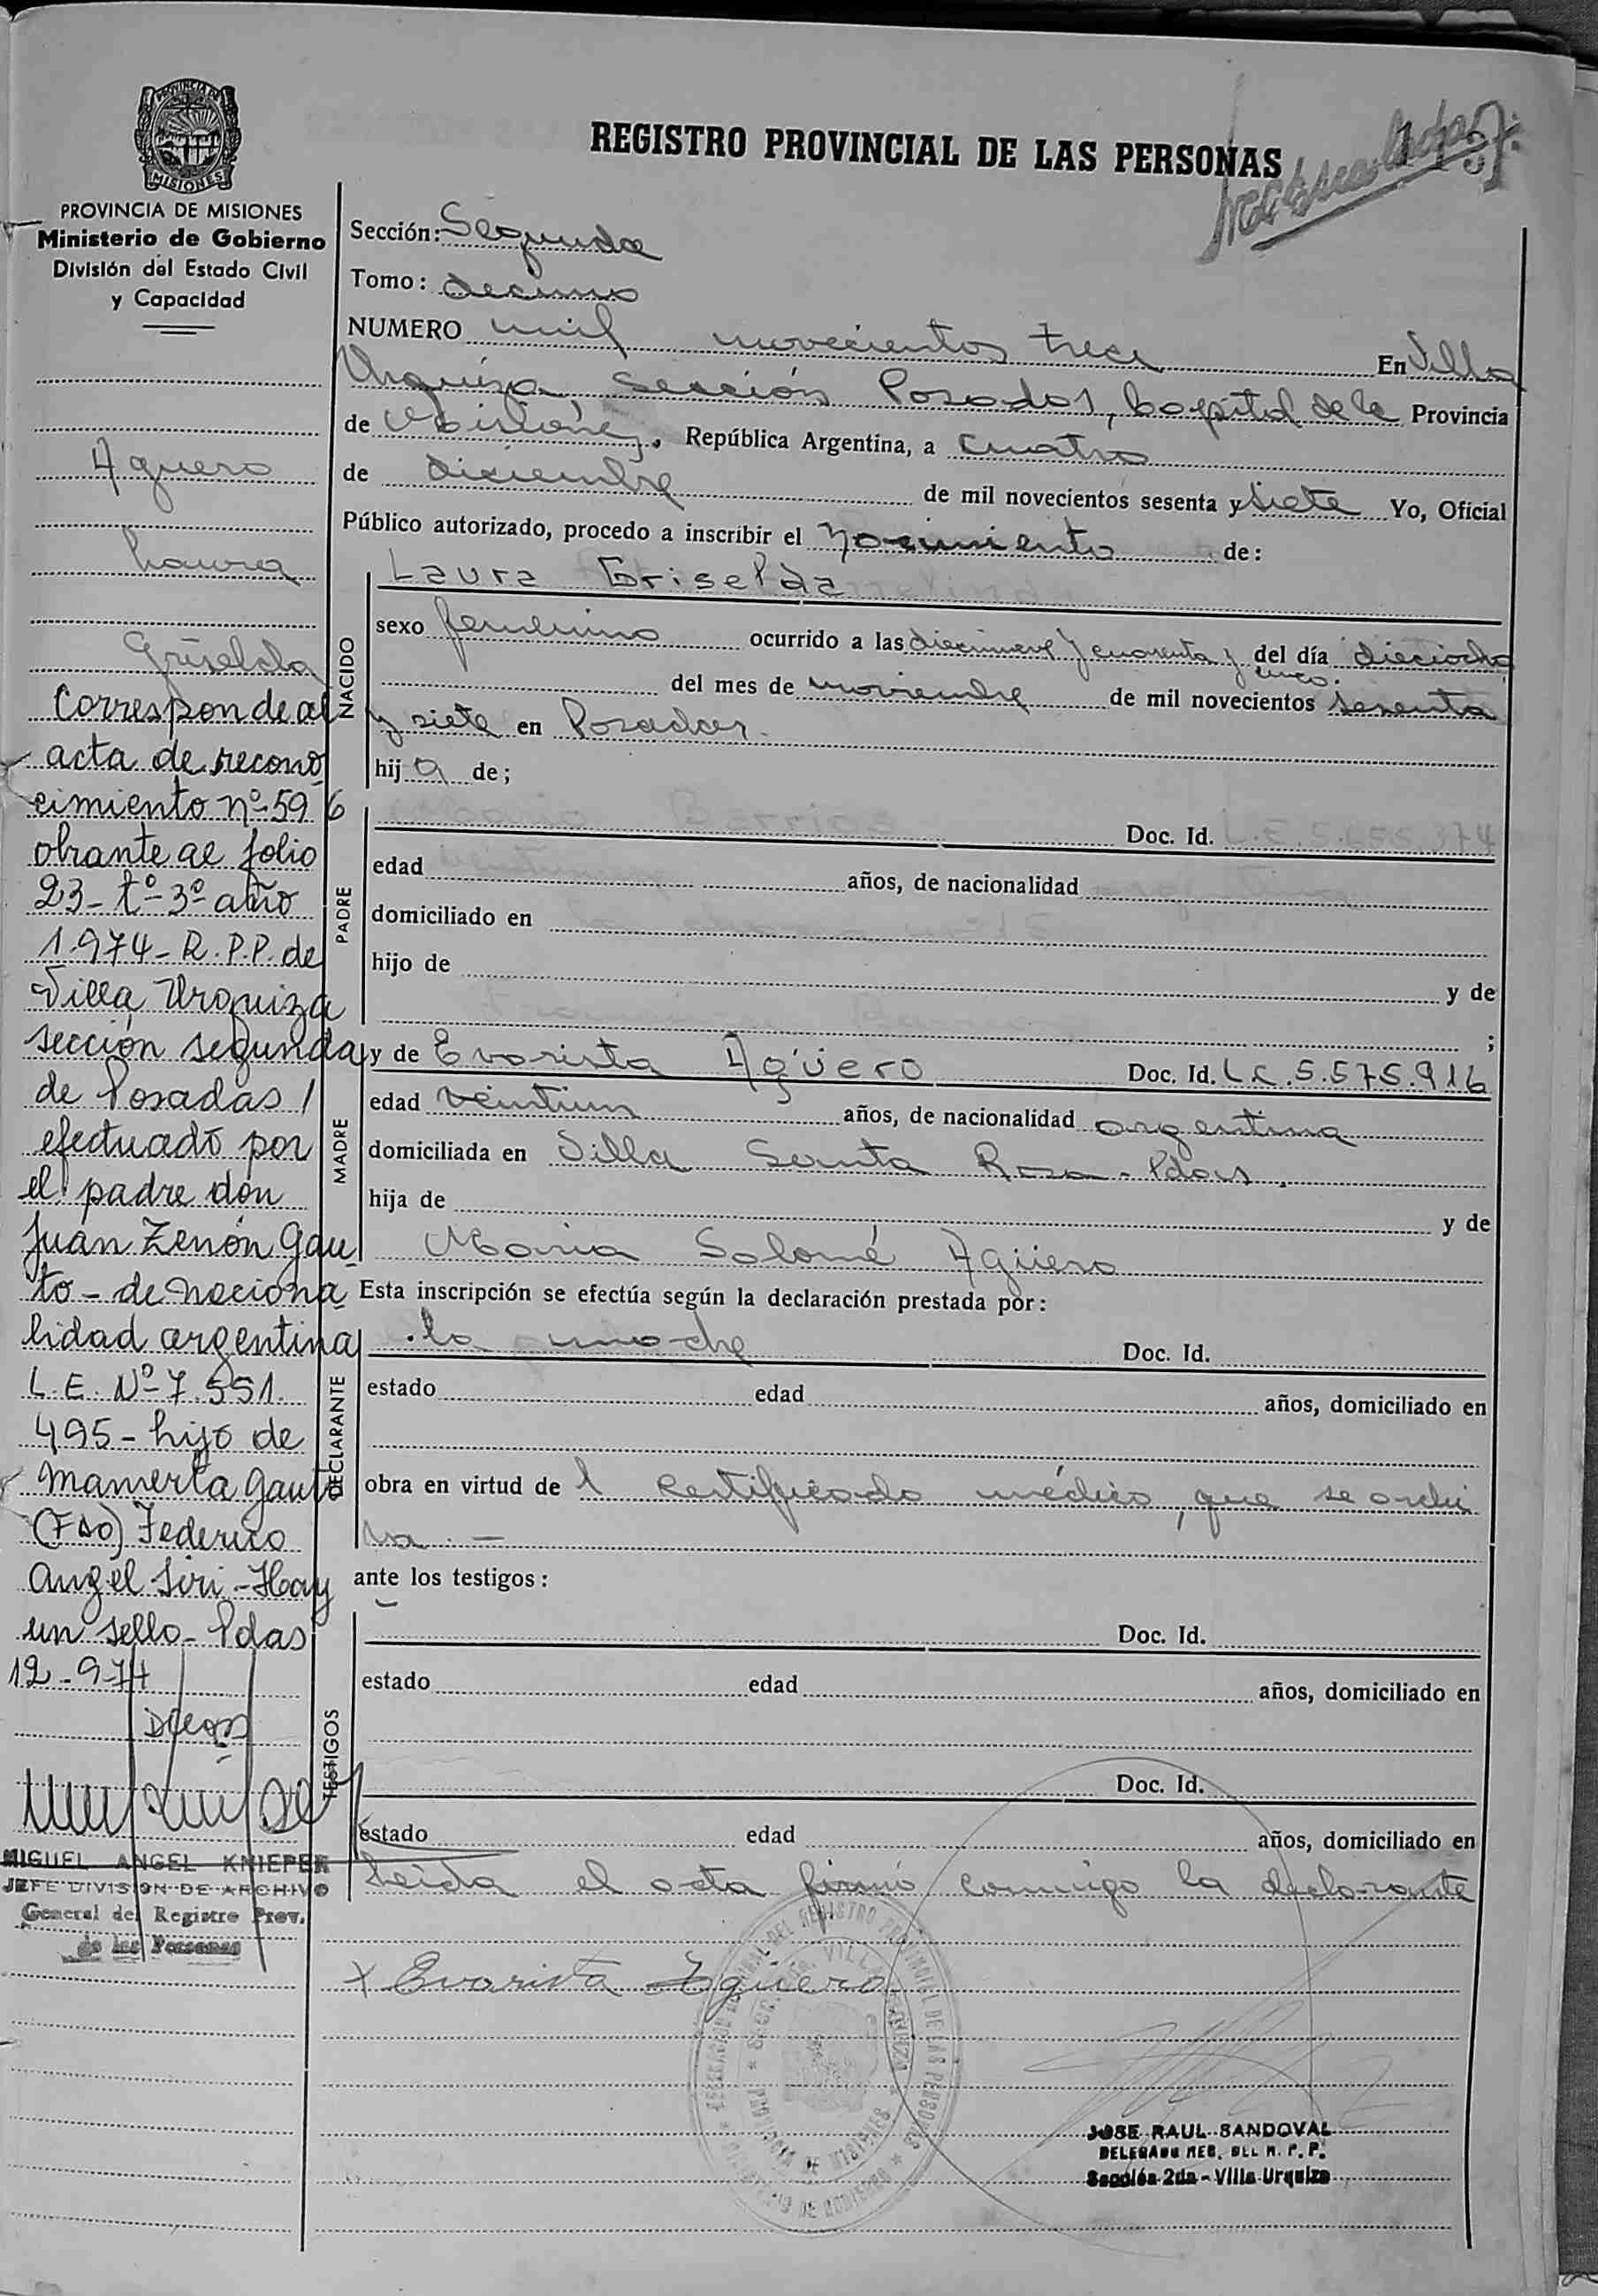 PROVINCIA DE MISIONES
Ministerio de Gobierno
División del Estado Civil
y Capacidad
REGISTRO PROVINCIAL DE LAS PERSONAS
Sección: Segunda
Tomo: decimo
NUMERO mil novecientos trece En Villa
Urquiza sección Posadas, Capital de la Provincia
de Misiones, República Argentina, a cuatro
de diciembre de mil novecientos sesenta y siete Yo, Oficial
Público autorizado, procedo a inscribir el nacimiento de:
NACIDO
Laura Griselda
sexo femenino ocurrido a las diecinueve y cuarenta y cinco del día dieciocho
del mes de noviembre de mil novecientos sesenta
y siete en Posadas.
hija de;
PADRE
Doc. Id.
edad años, de nacionalidad
domiciliado en
hijo de y de
;
MADRE
y de Evarista Agüero Doc. Id. L.C. 5.575.916
edad veintiun años, de nacionalidad argentina
domiciliada en Villa Santa Rosa - Pdas.
hija de y de
Maria Salomé Agüero
Esta inscripción se efectúa según la declaración prestada por:
DECLARANTE
la madre Doc. Id.
estado edad años, domiciliado en
obra en virtud de l certificado médico, que se archi
va. -
ante los testigos:
TESTIGOS
Doc. Id.
estado edad años, domiciliado en
Doc. Id.
estado edad años, domiciliado en
Leida el acta firmó conmigo la declarante
x Evarista Agüero
JOSE RAUL SANDOVAL
Sección 2da - Villa Urquiza
Aguero
Laura
Griselda
Corresponde al
acta de recono
cimiento nº 596
obrante al folio
23 - tº - 3º año
1.974 - R.P.P. de
Villa Urquiza
sección segunda
de Posadas /
efectuado por
el padre don
Juan Zenón Gau
to - de naciona
lidad argentina
L.E. Nº 7.551.
495 - hijo de
Mamerta Gauto
(Fdo) Federico
Angel Siri - Hay
un sello - Pdas
12-9-74
MIGUEL ANGEL KNIEPER
JEFE DIVISION DE ARCHIVO
General del Registro Prov.
de las Personas